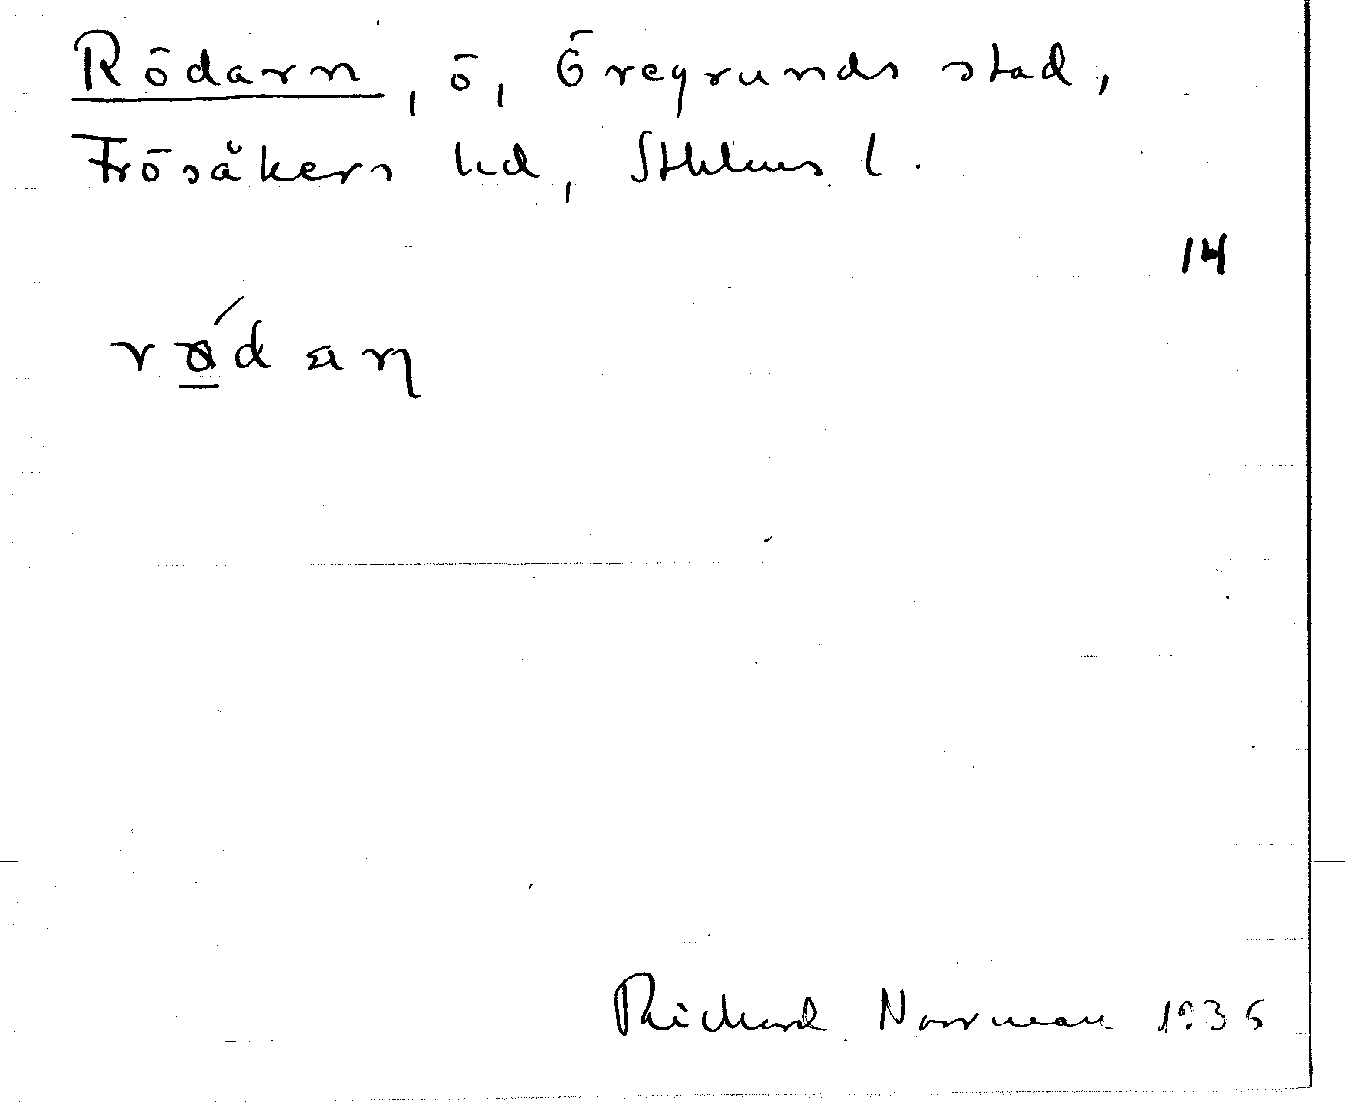 Rödarn, ö, Öregrunds stad,
Frösåkers hd, Sthlms l.
14
Richard Norrman 1935